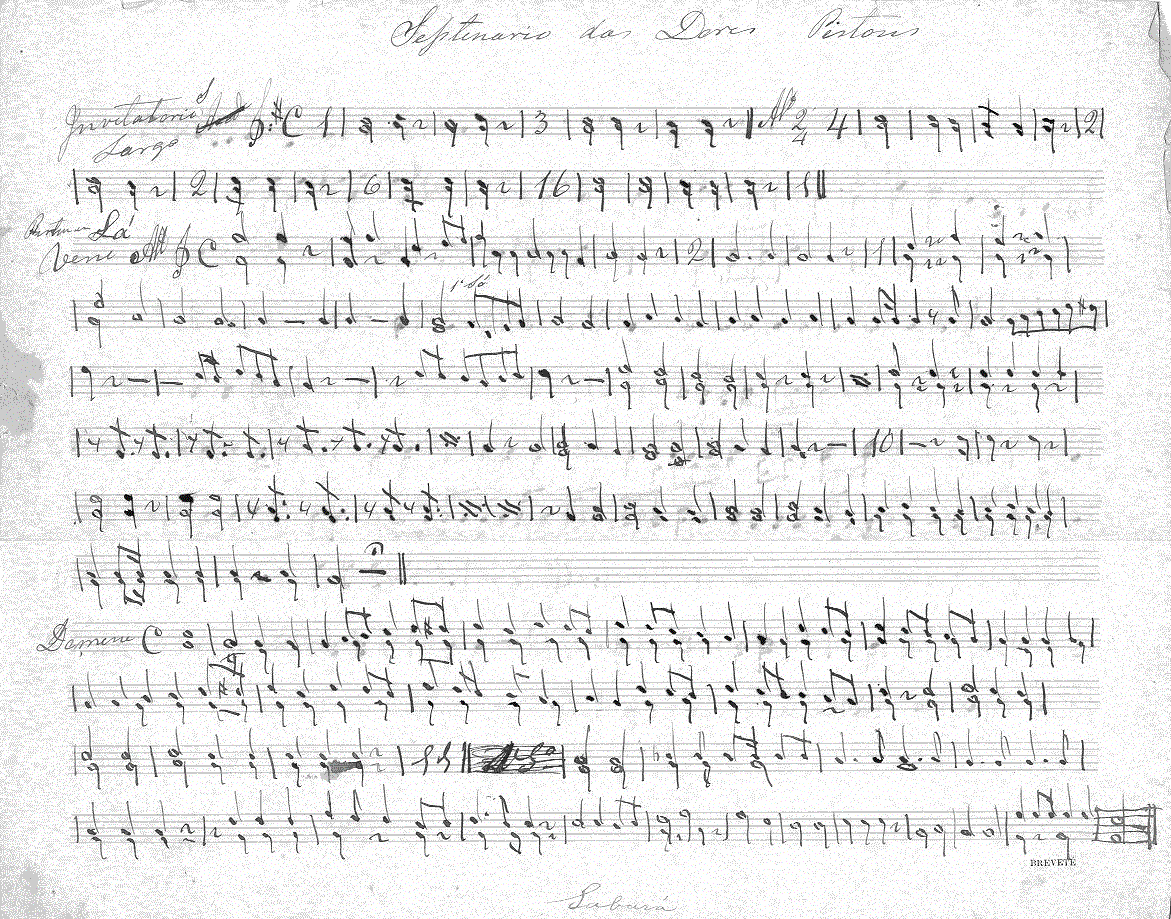 Septenario das Dores Pistons
Invitatorio
Largo C 1 3 All 2 4 4 2
2 6 16 1
Lá
Veni All C 2 1
1º Só
10
Domine C
BREVETÉ
Sabará